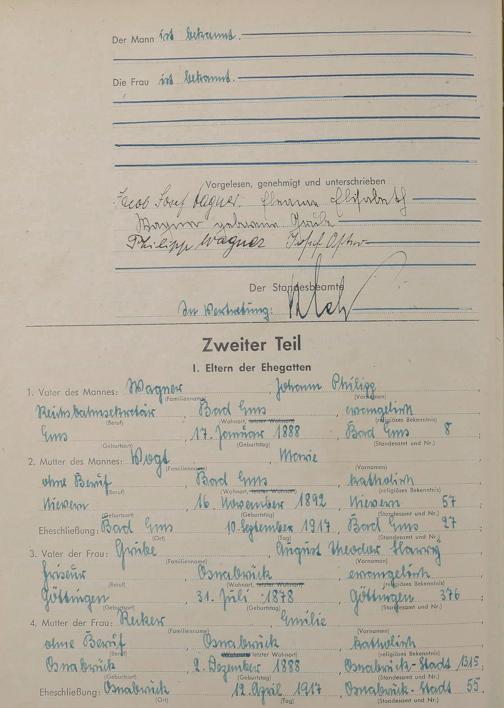 Der Mann ist bekannt.
Die Frau ist bekannt.
Vorgelesen, genehmigt und unterschrieben
Jacob Josef Wagner. Eleonore Elisabeth
Wagner geborene Grube
Philipp Wagner Josef
Der Standesbeamte
In Vertretung:
Zweiter Teil
I. Eltern der Ehegatten
1. Vater des Mannes: Wagner Johann Philipp
(Familienname) (Vornamen)
Reichsbahnsekretär, Bad Ems, evangelisch
(Beruf) (Wohnort, letzter Wohnort) (religiöses Bekenntnis)
Ems, 17. Januar 1888 Bad Ems 8
(Geburtsort) (Geburtstag) (Standesamt und Nr.)
2. Mutter des Mannes: Vogt, Marie
(Familienname) (Vornamen)
ohne Beruf, Bad Ems, katholisch
(Beruf) (Wohnort, letzter Wohnort) (religiöses Bekenntnis)
Nievern, 16. November 1892, Nievern 57
(Geburtsort) (Geburtstag) (Standesamt und Nr.)
Eheschließung: Bad Ems 10. September 1917, Bad Ems 27
(Ort) (Tag) (Standesamt und Nr.)
3. Vater der Frau: Grube, August Theodor Harry
(Familienname) (Vornamen)
Friseur, Osnabrück, evangelisch
(Beruf) (Wohnort, letzter Wohnort) (religiöses Bekenntnis)
Göttingen, 31. Juli 1878, Göttingen 376
(Geburtsort) (Geburtstag) (Standesamt und Nr.)
4. Mutter der Frau: Emilie
(Familienname) (Vornamen)
ohne Beruf, Osnabrück, katholisch
(Beruf) (Wohnort, letzter Wohnort) (religiöses Bekenntnis)
Osnabrück, 2. Dezember 1888, Osnabrück-Stadt 1315,
(Geburtsort) (Geburtstag) (Standesamt und Nr.)
Eheschließung: Osnabrück, 12. April 1917, Osnabrück-Stadt 55.
(Ort) (Tag) (Standesamt und Nr.)